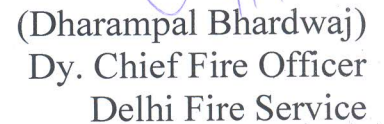 (Dharampal Bhardwaj)
Dy. Chief Fire Officer
Delhi Fire Service